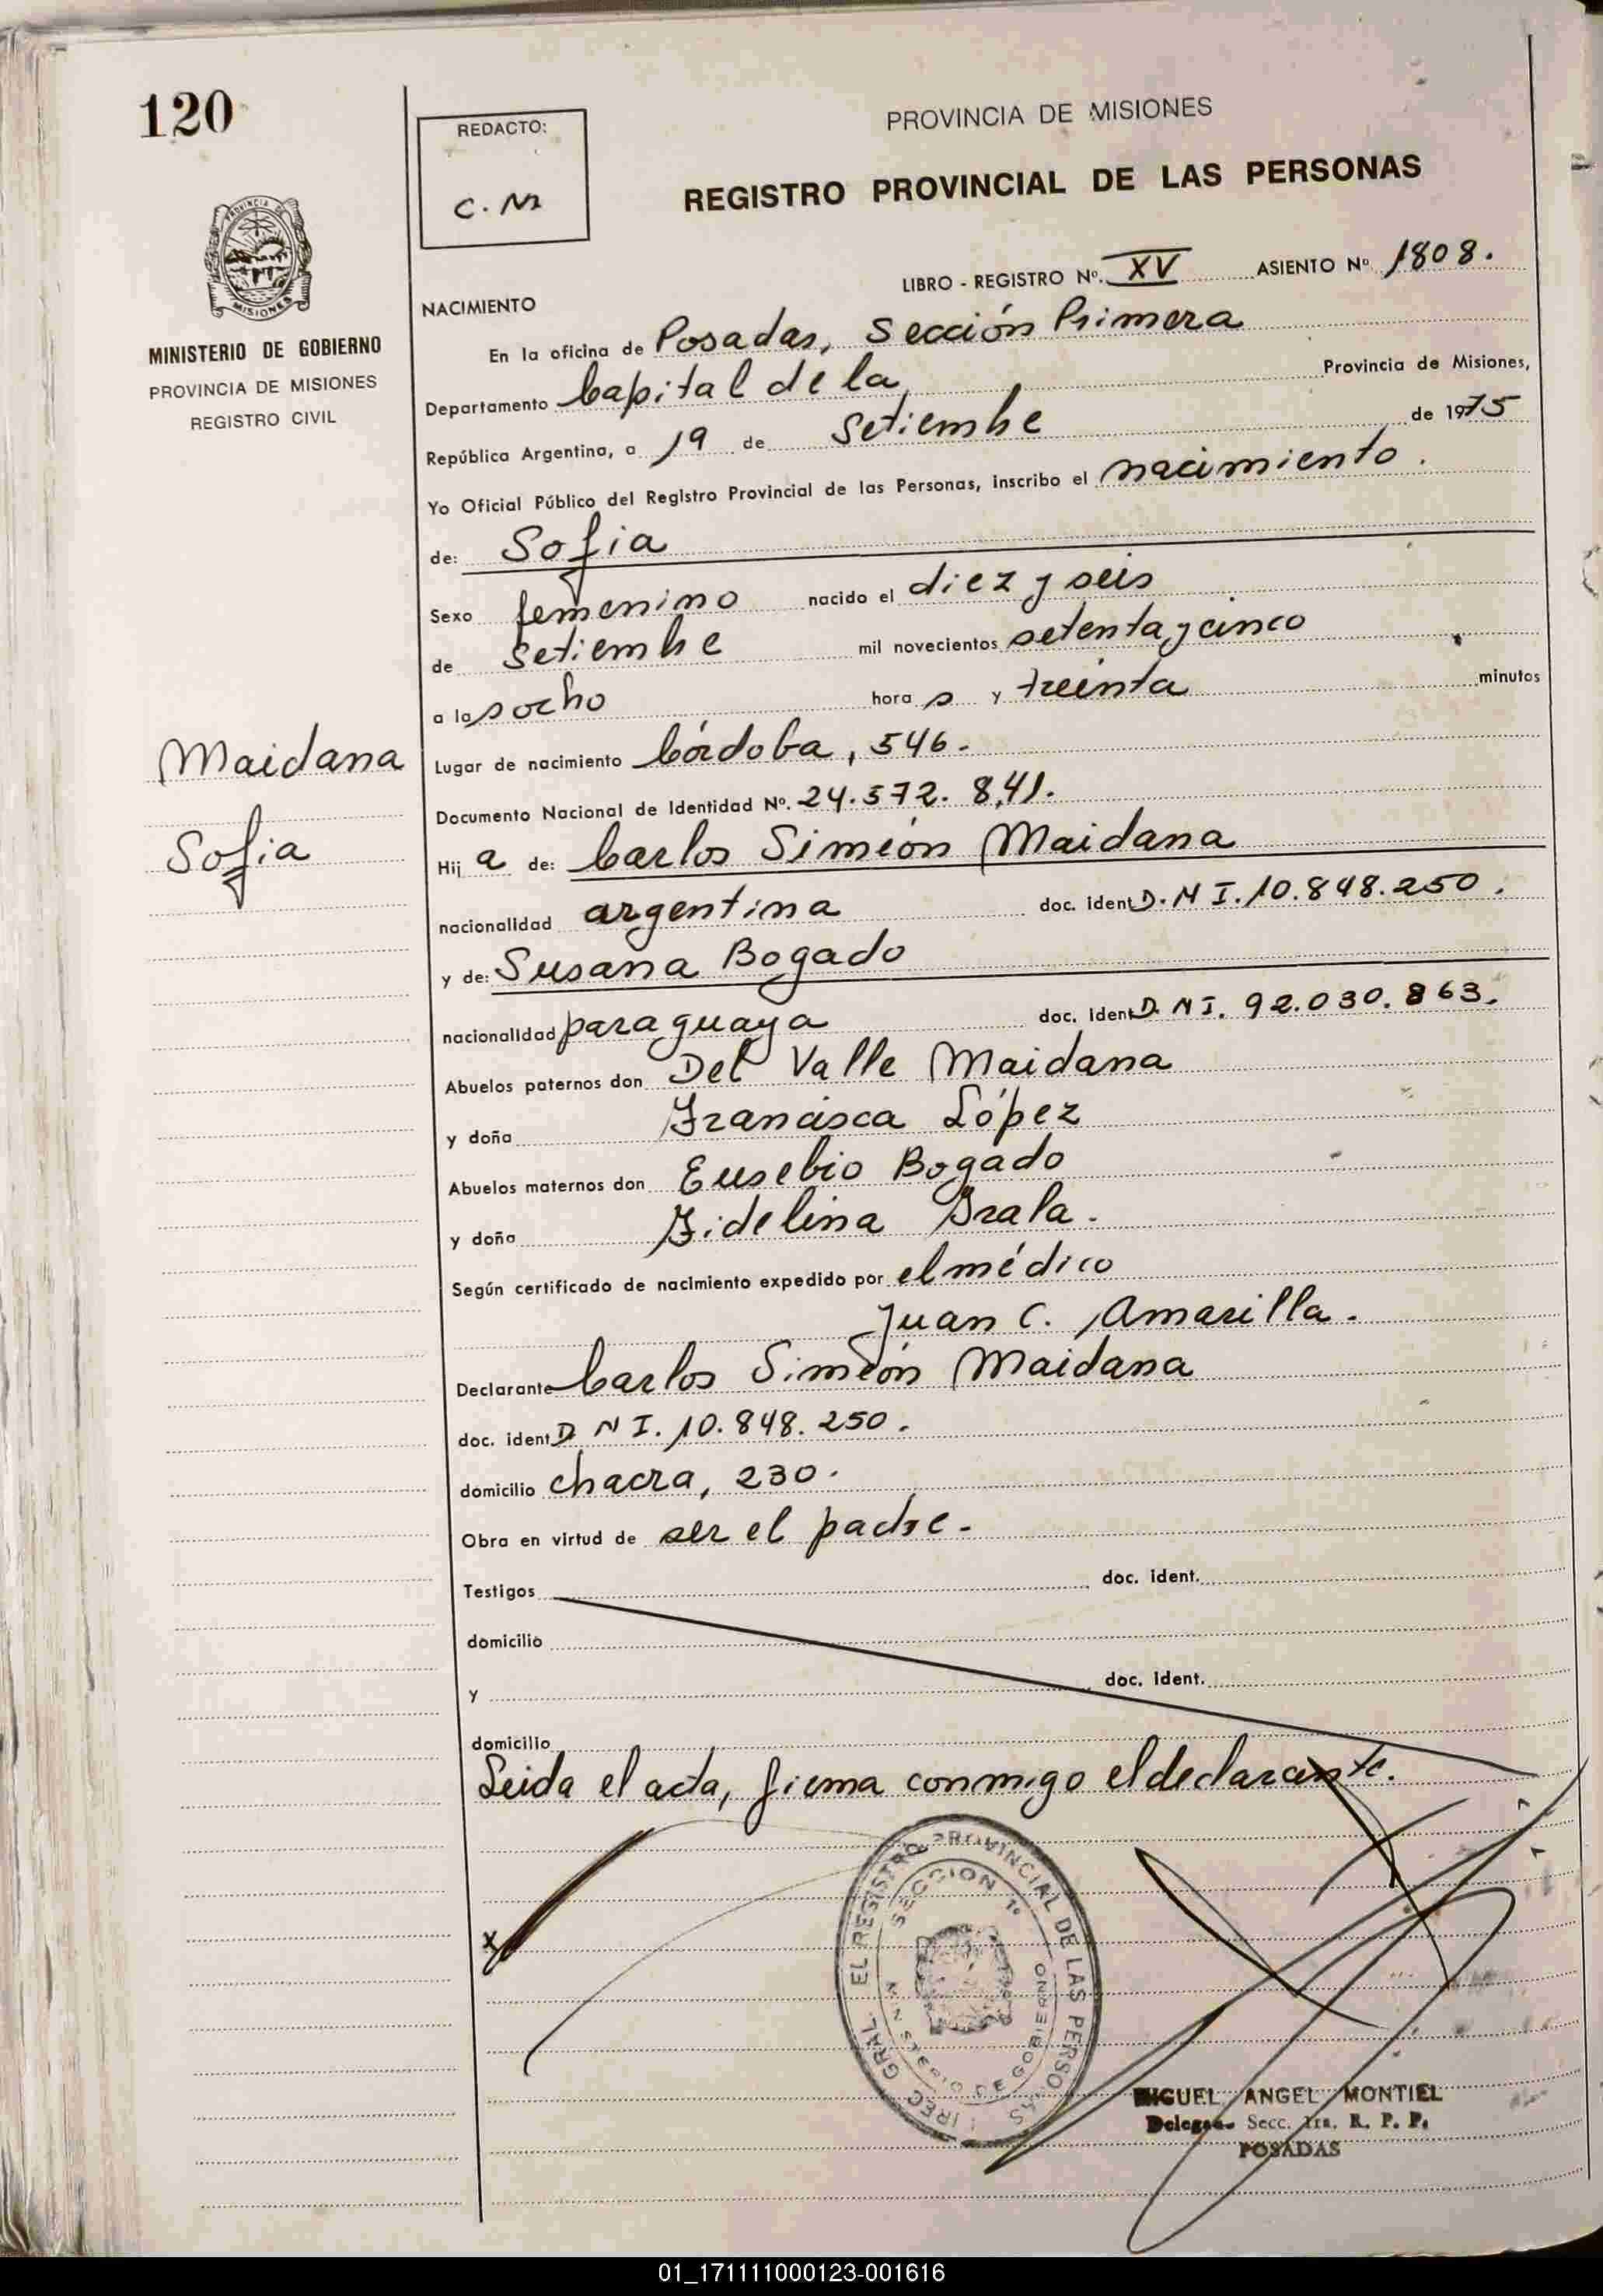 120
REDACTO:
C. M
PROVINCIA DE MISIONES
REGISTRO PROVINCIAL DE LAS PERSONAS
PROVINCIA DE MISIONES
MINISTERIO DE GOBIERNO
PROVINCIA DE MISIONES
REGISTRO CIVIL
LIBRO - REGISTRO Nº. XV ASIENTO Nº 1808.
NACIMIENTO
En la oficina de Posadas, Sección Primera
Departamento Capital de la Provincia de Misiones,
República Argentina, a 19 de Setiembre de 1975
Yo Oficial Público del Registro Provincial de las Personas, inscribo el nacimiento.
de: Sofia
Sexo femenino nacido el diez y seis
de Setiembre mil novecientos setenta y cinco
a las ocho hora s y treinta minutos
Maidana
Sofia
Lugar de nacimiento Córdoba, 546.
Documento Nacional de Identidad Nº. 24.572.841.
Hij a de: Carlos Simeón Maidana
nacionalidad argentina doc. ident D.N I. 10.848.250.
y de: Susana Bogado
nacionalidad paraguaya doc. ident D. N I. 92.030.863.
Abuelos paternos don Del Valle Maidana
y doña Francisca López
Abuelos maternos don Eusebio Bogado
y doña Fidelina Irala.
Según certificado de nacimiento expedido por el médico
Juan C. Amarilla.
Declarante Carlos Simeón Maidana
doc. ident D N I. 10.848.250.
domicilio chacra, 230.
Obra en virtud de ser el padre.
Testigos doc. ident.
domicilio
y doc. ident.
domicilio
Leida el acta, firma conmigo el declarante.
x
DIREC GRAL. EL REGISTRO PROVINCIAL DE LAS PERSONAS
SECCION 1º
MINISTERIO DE GOBIERNO
MIGUEL ANGEL MONTIEL
Delegado Secc. 1ra. R. P. P.
POSADAS
01_171111000123-001616